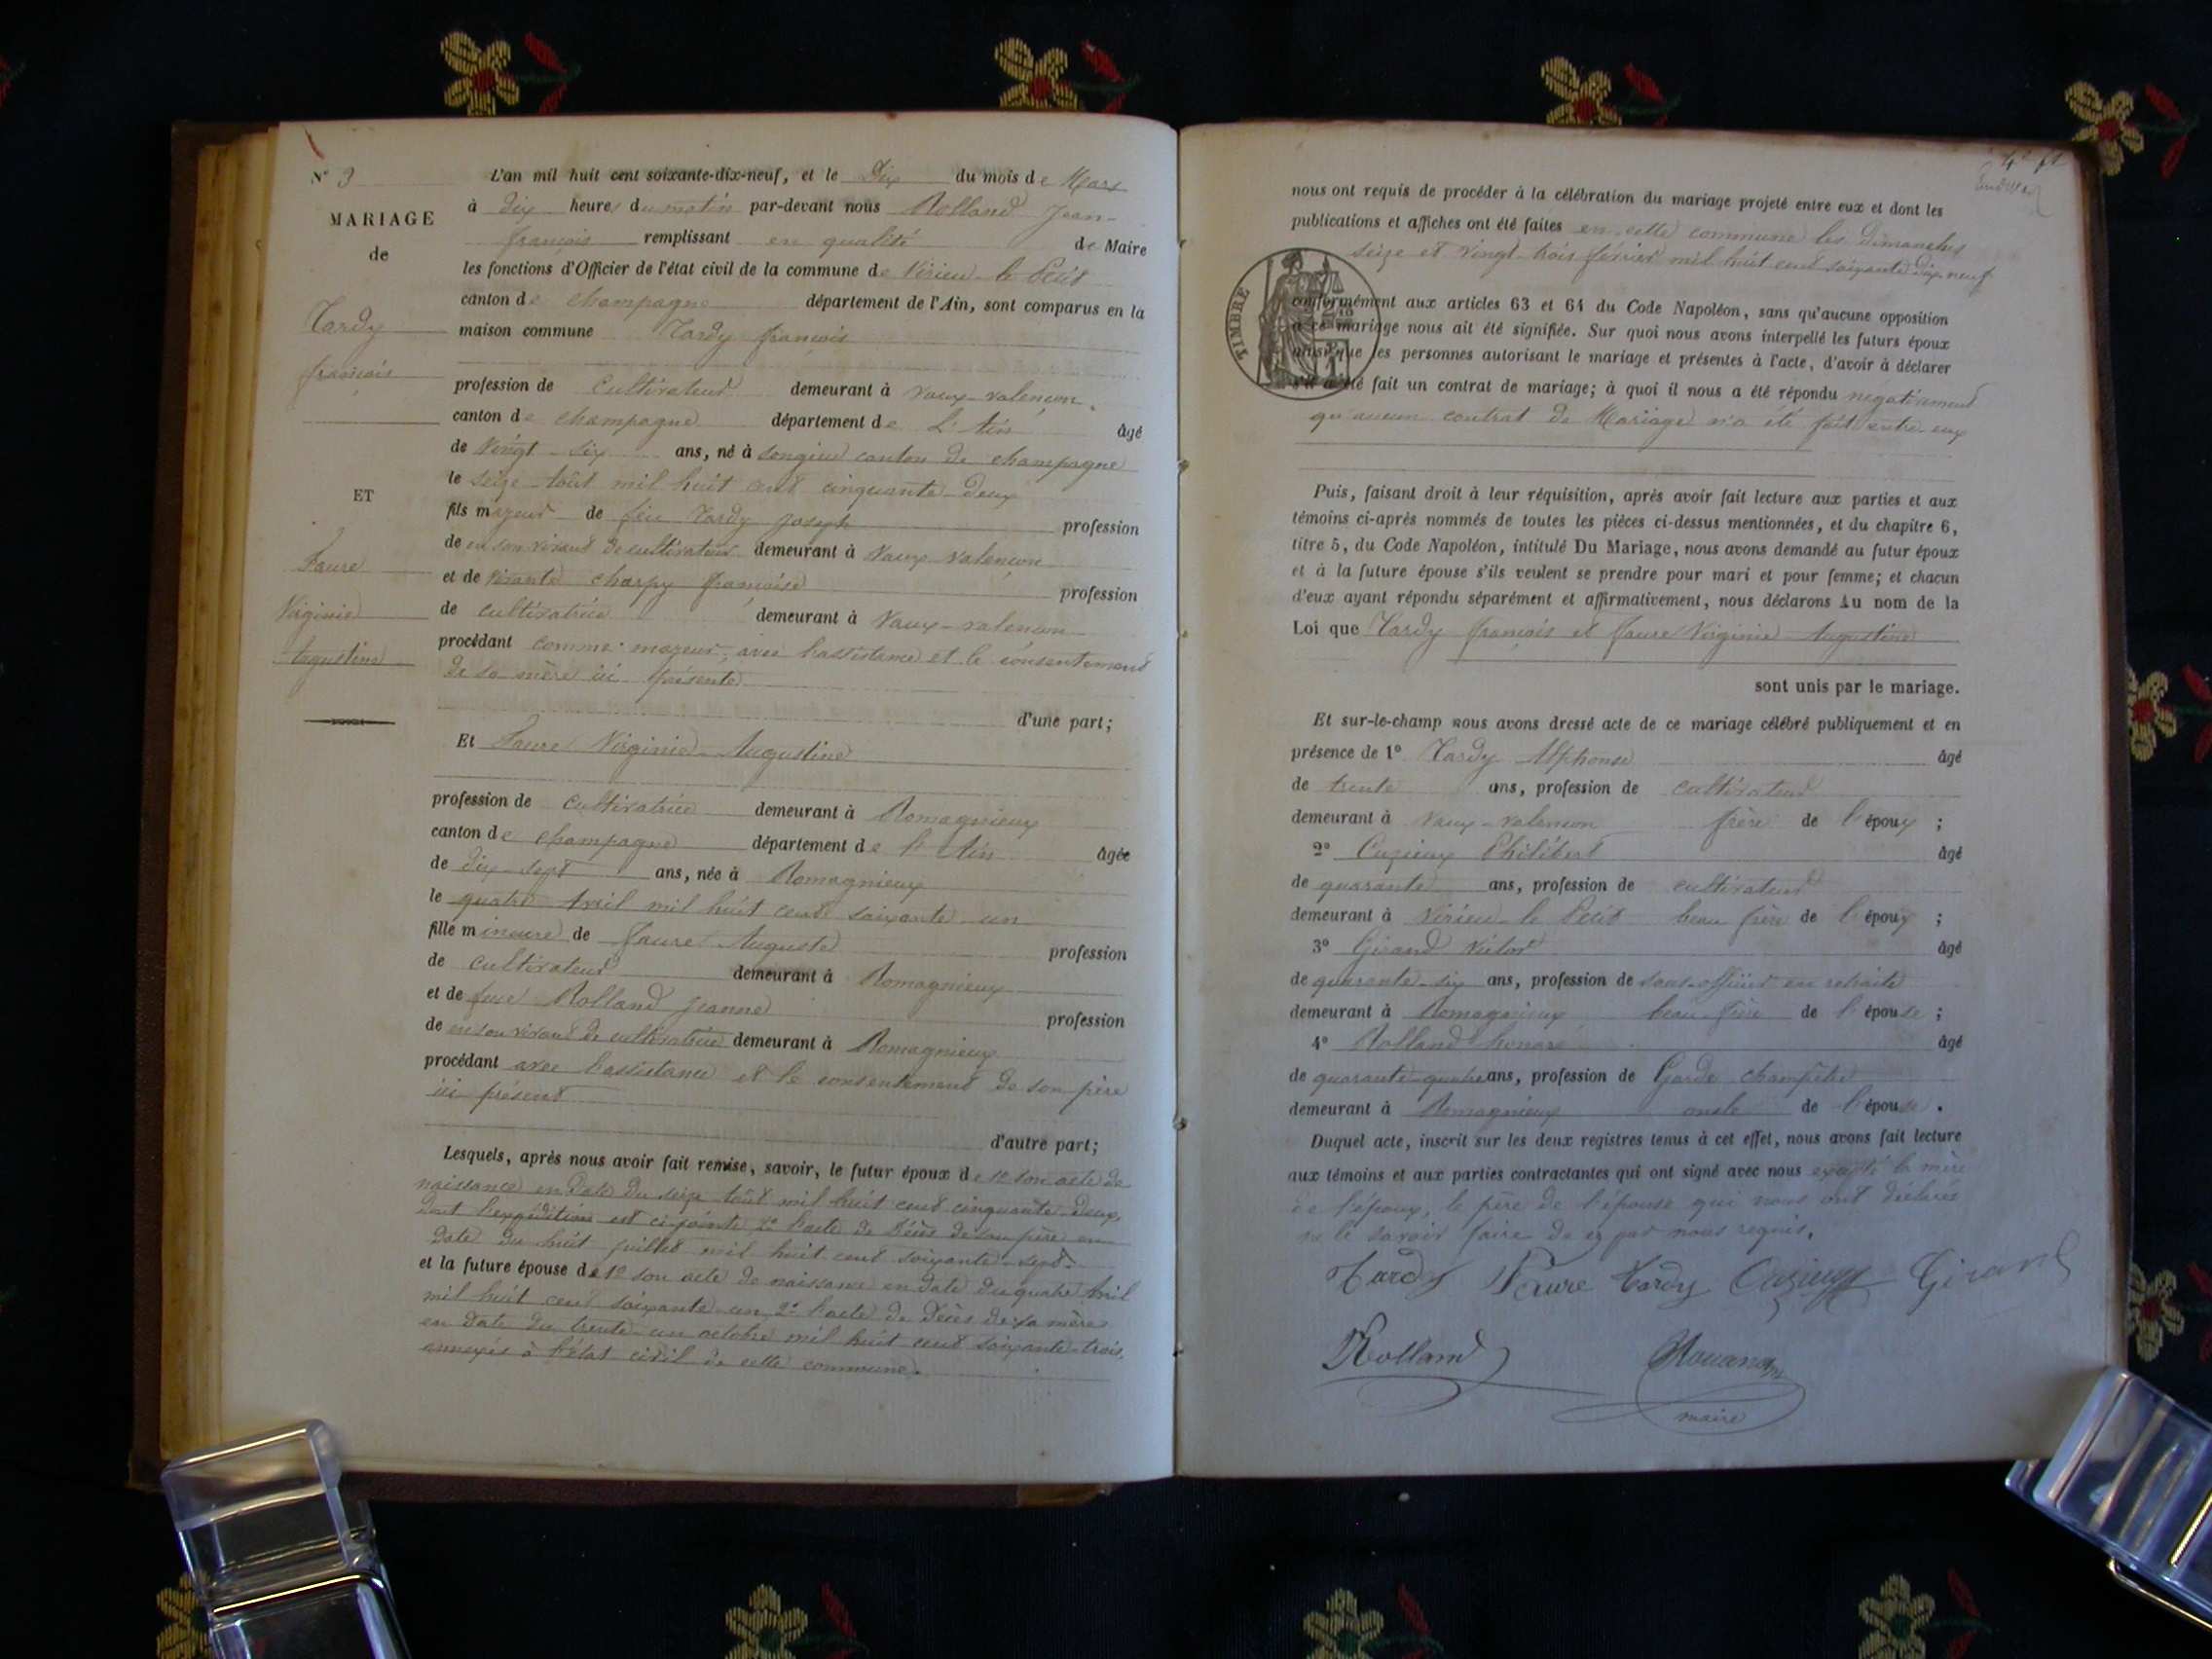 N° 3
MARIAGE
de
Tardy
françois
ET
Faure
Virginie
Augustine
L'an mil huit cent soixante-dix-neuf, et le Dix du mois de Mars
à dix heures du matin par-devant nous Rolland Jean-
françois remplissant en qualité de Maire
les fonctions d'Officier de l'état civil de la commune de Virieu-le-Petit
canton de champagne département de l'Ain, sont comparus en la
maison commune Tardy françois
profession de Cultivateur demeurant à Vaux-valençon
canton de champagne département de L'Ain âgé
de Vingt-six ans, né à songieu canton de champagne
le seize Août mil huit cent cinquante-deux
fils majeur de feu Tardy Joseph profession
de en son vivant de cultivateur demeurant à Vaux-valençon
et de vivante charpy françoise profession
de cultivatrice demeurant à Vaux-valençon
procédant comme majeur, avec l'assistance et le consentement
de sa mère ici présente
d'une part;
Et Faure Virginie-Augustine
profession de Cultivatrice demeurant à Romagnieux
canton de champagne département de l'Ain âgée
de dix-sept ans, née à Romagnieux
le quatre Avril mil huit cent soixante-un
fille mineure de Faure Auguste profession
de cultivateur demeurant à Romagnieux
et de feue Rolland Jeanne profession
de en son vivant de cultivatrice demeurant à Romagnieux
procédant avec l'assistance et le consentement de son père
ici présent
d'autre part;
Lesquels, après nous avoir fait remise, savoir, le futur époux de 1° son acte de
naissance en date du seize Août mil huit cent cinquante-deux,
dont l'expédition est ci-jointe 2° l'acte de décès de son père en
date du huit juillet mil huit cent soixante-sept
et la future épouse de 1° son acte de naissance en date du quatre Avril
mil huit cent soixante-un, 2° l'acte de décès de sa mère
en date du trente-un octobre mil huit cent soixante-trois,
annexés à l'état civil de cette commune.
nous ont requis de procéder à la célébration du mariage projeté entre eux et dont les
publications et affiches ont été faites en cette commune les dimanches
seize et vingt-trois février mil huit cent soixante-dix-neuf
TIMBRE
conformément aux articles 63 et 64 du Code Napoléon, sans qu'aucune opposition
à ce mariage nous ait été signifiée. Sur quoi nous avons interpellé les futurs époux
ainsi que les personnes autorisant le mariage et présentes à l'acte, d'avoir à déclarer
s'il a été fait un contrat de mariage; à quoi il nous a été répondu négativement
qu'aucun contrat de Mariage n'a été fait entre eux
Puis, faisant droit à leur réquisition, après avoir fait lecture aux parties et aux
témoins ci-après nommés de toutes les pièces ci-dessus mentionnées, et du chapitre 6,
titre 5, du Code Napoléon, intitulé Du Mariage, nous avons demandé au futur époux
et à la future épouse s'ils veulent se prendre pour mari et pour femme; et chacun
d'eux ayant répondu séparément et affirmativement, nous déclarons Au nom de la
Loi que Tardy françois et Faure Virginie-Augustine
sont unis par le mariage.
Et sur-le-champ nous avons dressé acte de ce mariage célébré publiquement et en
présence de 1° Tardy Alphonse âgé
de trente ans, profession de cultivateur
demeurant à Vaux-valençon frère de l'époux ;
2° Cuzieux Philibert âgé
de quarante ans, profession de cultivateur
demeurant à Virieu-le-Petit beau frère de l'époux ;
3° Girand Victor âgé
de quarante-six ans, profession de sous-officier en retraite
demeurant à Romagnieux beau-frère de l'épouse ;
4° Rolland honoré âgé
de quarante-quatre ans, profession de Garde champêtre
demeurant à Romagnieux oncle de l'épouse.
Duquel acte, inscrit sur les deux registres tenus à cet effet, nous avons fait lecture
aux témoins et aux parties contractantes qui ont signé avec nous excepté la mère
de l'époux, le père de l'épouse qui nous ont déclaré
ne le savoir faire de ce par nous requis.
Tardy Faure Tardy Cuzieux Girand
Rolland
maire